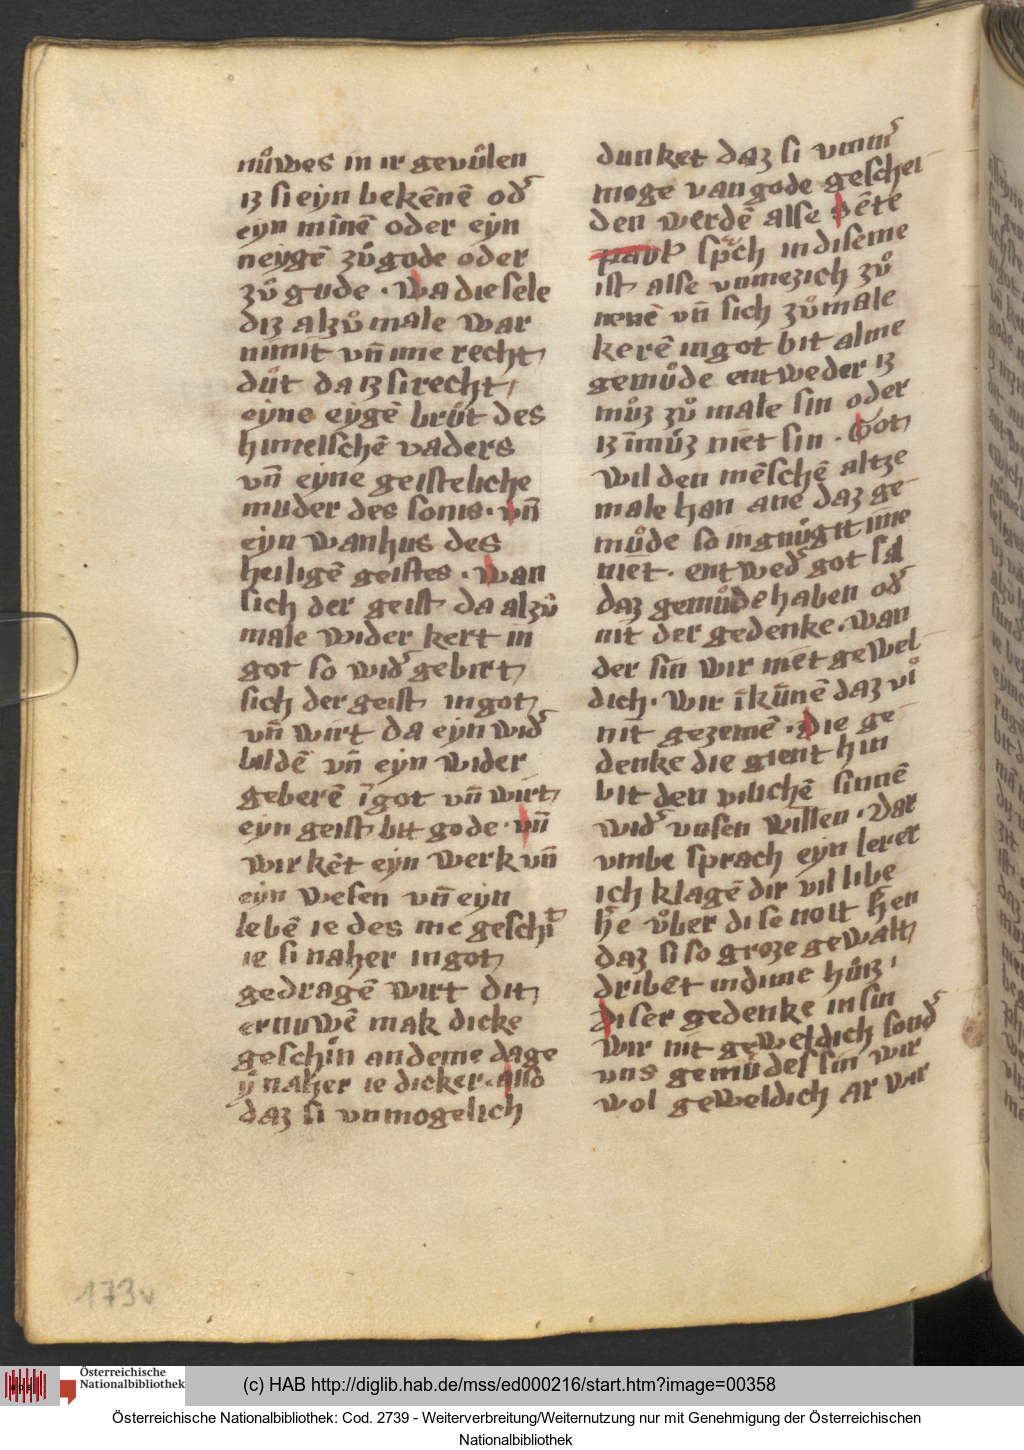 nuͦwes in ir gevuͦlen
iz si eyn bekēnē od᷒
eyn mīnē oder eyn
neygē zuͦ gode oder
zuͦ gude · Wa die sele
diz alzuͦmale war
nimit vn̄ ime recht
duͦt da iz si recht
eyne eygē bruͦt des
himelschē vaders
vn̄ eyne geisteliche
muder des sonis · vn̄
eyn wanhus des
heiligē geistes · wan
sich der geist da alzuͦ
male wider kert in
got so wid᷒ gebirt
sich der geist in got
vn̄ wirt da eyn wid᷒
bildē vn̄ eyn wider
geberē ī got vn̄ wirt
eyn geist bit gode · vn̄
wirkēt eyn werk vn̄
eyn wesen vn̄ eyn
lebē ie des me geschit
ie si naher in got
gedragē wirt dit
ernuwē mak dicke
geschiͦn an deme dage
yͦ naher ie dicker · also
daz si vnmogelich
dunket daz si vmm᷒
moge van gode geschei
den werdē alse sēte
paul᷒ sp̃ch in diseme
ist alse vnmezich zuͦ
nenē vn̄ sich zuͦmale
kerē in got bit alme
gemuͦde entweder iz
muͦz zuͦ male sin oder
iz īmuͦz niet sin · Got
wil den mēschē altze
male han ane daz ge
muͦde so ingnuͦgit ime
niet · entwed᷒ got sal
daz gemuͦde haben od᷒
nit der gedenke · wan
der sin wir niet gewel
dich · wir īkūnē daz vi
nit gezemē · die ge
denke die gient hin
bit den vilichē sinnē
wid᷒ vnsen willen · Dar
vmbe sprach eyn lerer
ich klagē dir vil libe
h̄e vͦber dise noit h̄en
daz si so groze gewalt
dribēt in dime huͦiz ·
Diser gedenke in sin
wir nit geweldich sond᷒
vns gemuͦdes sin wir
wol geweldich ar wir
173v
Österreichische
Nationalbibliothek
(c) HAB http://diglib.hab.de/mss/ed000216/start.htm?image=00358
Österreichische Nationalbibliothek: Cod. 2739 - Weiterverbreitung/Weiternutzung nur mit Genehmigung der Österreichischen
Nationalbibliothek